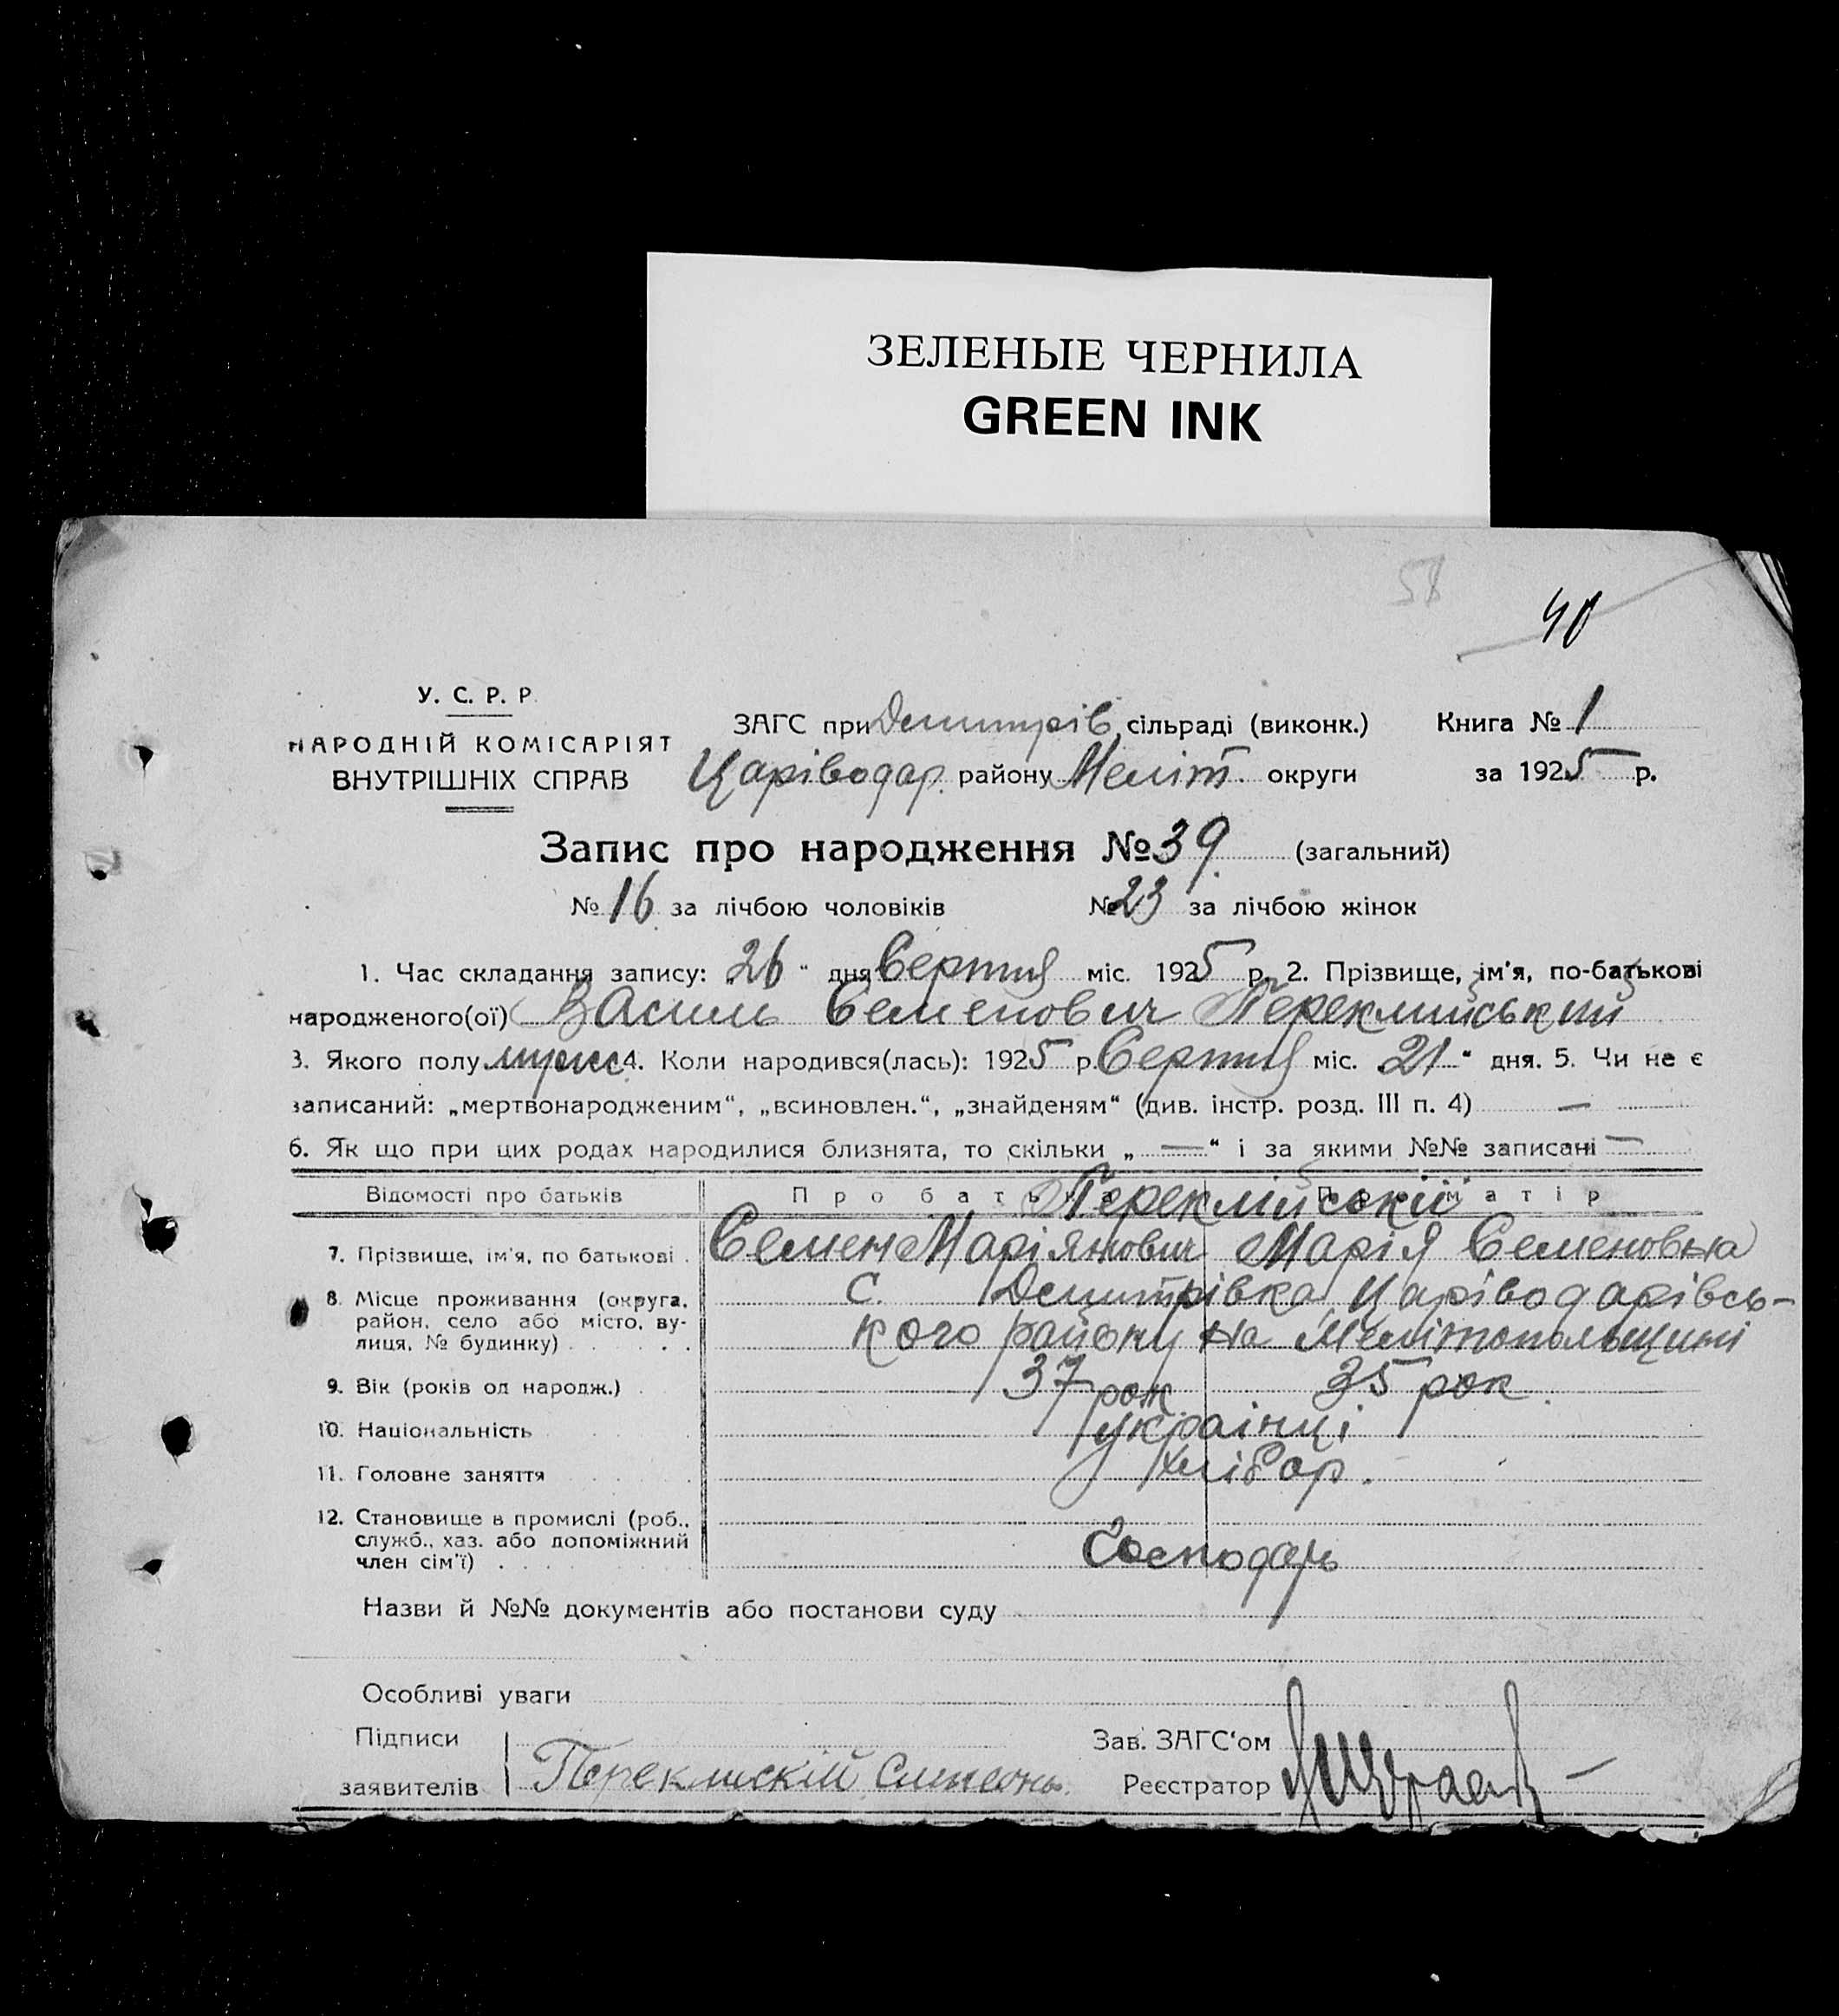 ЗЕЛЕНЫЕ ЧЕРНИЛА
GREEN INK
58
40
У. С. Р. Р.
НАРОДНІЙ КОМІСАРІЯТ
ВНУТРІШНІХ СПРАВ
ЗАГС при Демитрів. сільраді (виконк.) Книга № 1
Царіводар. району Меліт. округи за 1925 р.
Запис про народження № 39. (загальний)
№ 16 за лічбою чоловіків № 23 за лічбою жінок
1. Час складання запису: „26“ дня Серпня міс. 1925 р. 2. Прізвище, ім'я, по-батькові
народженого(ої) Василь Семенович Переклийський
3. Якого полу мужс. 4. Коли народився(лась): 1925 р. Серпня міс. 21 “ дня. 5. Чи не є
записаний: „мертвонародженим“, „всиновлен.“, „знайденям“ (див. інстр. розд. III п. 4) —
6. Як що при цих родах народилися близнята, то скільки „ — “ і за якими №№ записані —
Відомості про батьків Про батька Про матір
Переклійські
7. Прізвище, ім'я, по батькові Семен Маріянович Марія Семеновна
8. Місце проживання (округа, район, село або місто, вулиця, № будинку) с. Демитрівка Царіводарівсь-
кого району на Мелітопольщині
9. Вік (років од народж.) 37 рок. 35 рок.
10. Національність українці
11. Головне заняття хлібор.
12. Становище в промислі (роб.,
служб., хаз. або допоміжний
член сім'ї) Господарь
Назви й №№ документів або постанови суду
Особливі уваги
Підписи Зав. ЗАГС'ом
заявителів Переклискій Симеонъ. Реєстратор